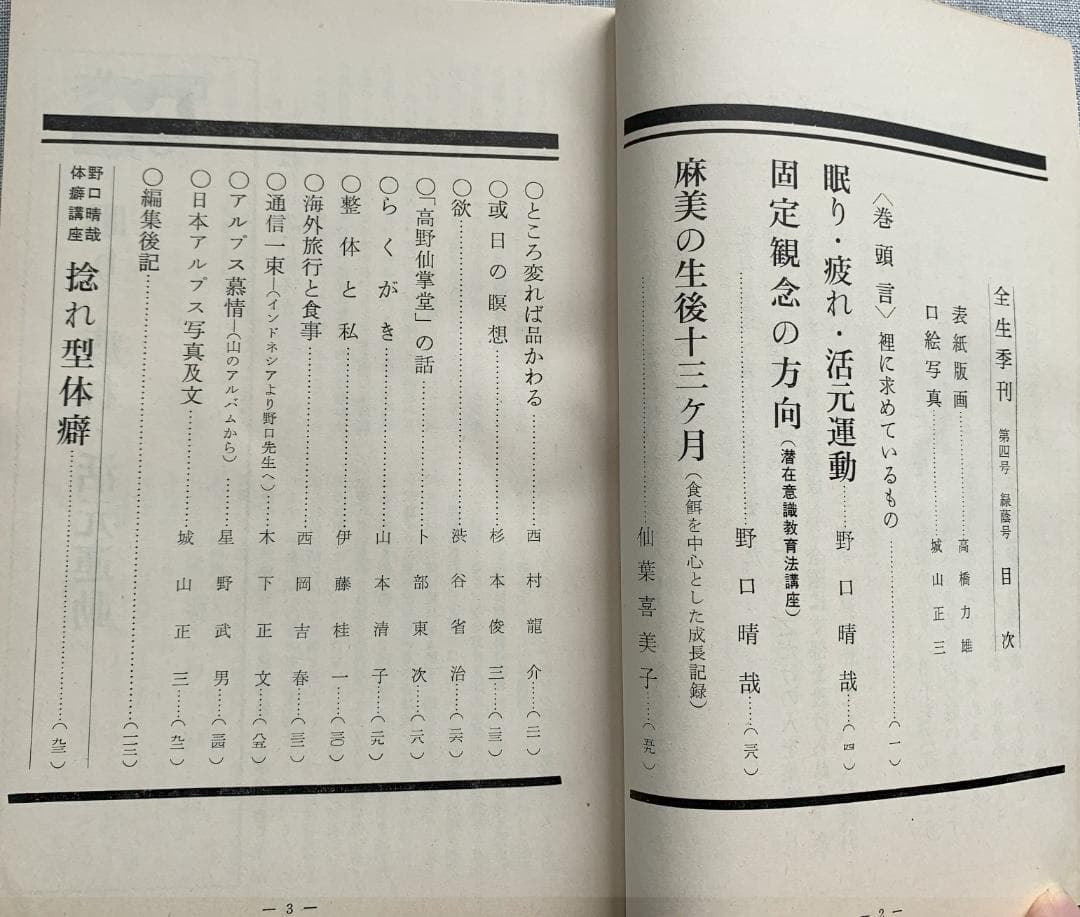 全生季刊 第四号 緑蔭号 目次
表紙版画………高橋力雄
口絵写真………城山正三
〈巻頭言〉裡に求めているもの………(一)
眠り・疲れ・活元運動……野口晴哉……(四)
固定観念の方向(潜在意識教育法講座)
………野口晴哉……(三八)
麻美の生後十三ヶ月(食餌を中心とした成長記録)
………仙葉喜美子……(五九)
— 2 —
○ところ変れば品かわる………西村龍介……(二一)
○或日の瞑想………杉本俊三……(二三)
○欲………渋谷省治……(二六)
○「高野仙掌堂」の話………卜部東次……(二八)
○らくがき………山本清子……(二九)
○整体と私………伊藤桂一……(三〇)
○海外旅行と食事………西岡吉春……(三二)
○通信一束—(インドネシアより野口先生へ)……木下正文……(八五)
○アルプス慕情—(山のアルバムから)……星野武男……(三四)
○日本アルプス写真及文………城山正三……(九二)
○編集後記………(一一三)
野口晴哉
体癖講座 捻れ型体癖………(九三)
— 3 —